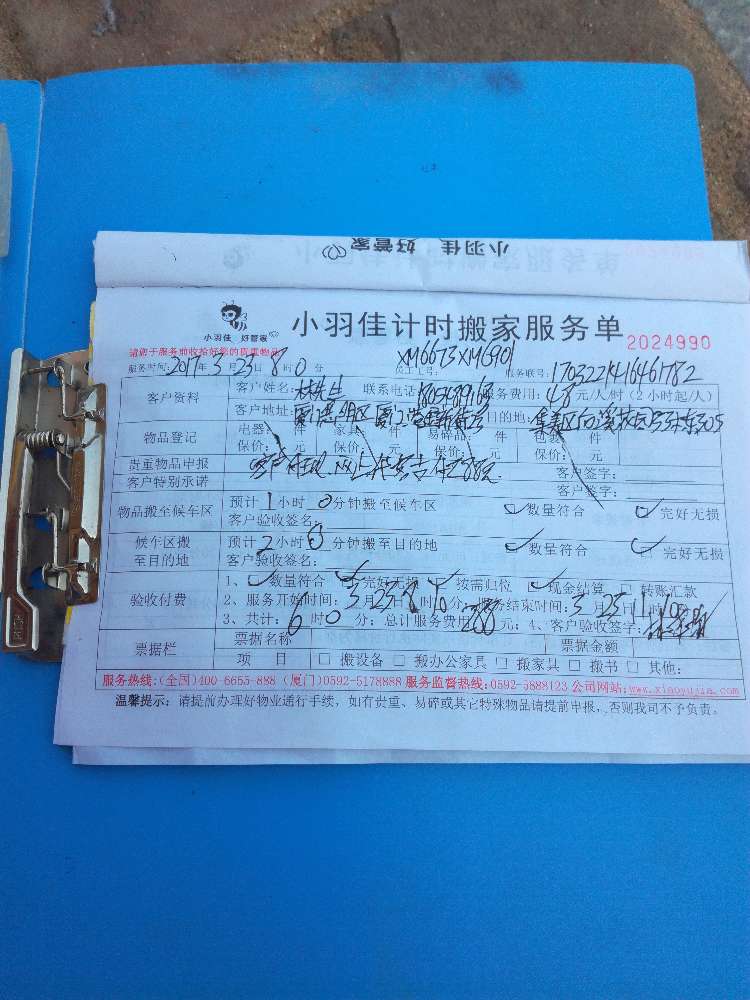 小羽佳 好管家
小羽佳 好管家
小羽佳计时搬家服务单 2024990
请您于服务前收拾好您的贵重物品
XM6673 XM6901
服务时间: 2017年 3月 23日 8时 0分 员工工号: 服务联号: 1703221416461782
客户资料 客户姓名: 林先生 联系电话 服务费用: 48元/人/时(2小时起/人)
客户地址: 目的地:
物品登记 电器: 件 家具: 件 易碎品: 件 包装 件
保价: 元 保价: 元 保价: 元 保价: 元
贵重物品申报 客户签字:
客户特别承诺 客户签字:
物品搬至候车区 预计 1小时 0分钟搬至候车区 数量符合 完好无损
客户验收签名:
候车区搬至目的地 预计 2小时 0分钟搬至目的地 数量符合 完好无损
客户验收签名:
验收付费 1、 数量符合 完好无损 按需归位 现金结算 □ 转账汇款
2、服务开始时间: 3月 23日 8时 10分; 服务结束时间: 3月 23日 11时 10
3、共计: 6时 0分; 总计服务费用 288元; 4、客户验收签字:
票据栏 票据名称 票据金额
项 目 □ 搬设备 □ 搬办公家具 □ 搬家具 □ 搬书 □ 其他:
服务热线:(全国)400-6655-888 (厦门)0592-5178888 服务监督热线:0592-5688123 公司网站:www.xiaoyujia.com
温馨提示: 请提前办理好物业通行手续, 如有贵重、易碎或其它特殊物品请提前申报, 否则我司不予负责。